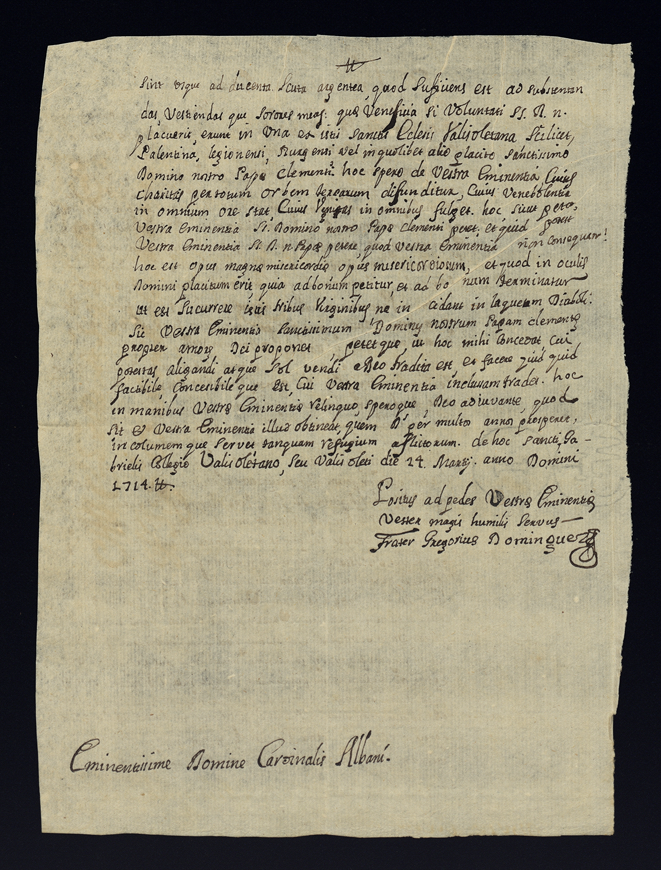 sint usque ad ducenta scuta argentea, quod sufficiens est ad sustentan
das, vestiendas que sorores meas: quæ Veneficia si Voluntati SS. D. n.
placueris, erunt in Una ex istis sanctis Eclesiis Valisoletana scilicet,
Palentina, legionensi, Burgensi vel in quolibet alio placito sanctissimo
Domino nostro Papæ Clementi: hoc spero de Vestra Eminentia Cuius
charitas per totum orbem terrarum difunditur, Cuius Venebolentia
in omnium ore stat, Cuius in omnibus fulget. hoc sicut peto,
Vestra Eminentia SS. Domino nostro Papæ Clementi petet. et quid potest
Vestra Eminentia SS. D. n Papæ petere, quod Vestra Eminentia non consequatur?
hoc est opus magnæ misericordiæ, opus misericordiorum, et quod in oculis
Domini placitum erit quia ad bonum petitur, et ad bonum terminatur
ut est sucurrere istis tribus Virginibus, ne in cidant in laqueum Diaboli:
Sic Vestra Eminentia sanctissimum Dominum nostrum Papam clementem
propter amorem Dei proponet, petetque, ut hoc mihi concedat cui
potestas aligandi atque sol vendi a Deo tradita est, et facere quid quid
factibile concesibile que est, Cui Vestra Eminentia inclusam tradet. hoc
in manibus Vestræ Eminentiæ relinquo, speroque, Deo adiuvante, quod
sit et Vestra Eminentia illud obtineat, quem D.s per multos annos prosperet,
in columemque servet tanquam refugium aflictorum. de hoc Sancti, Ga-
brielis Collegio Valisoletano, seu Valisoleti die 24. Martij. anno Domini
1714.
Positus ad pedes Vestræ Eminentiæ
Vester magis humilis servus—
Frater Gregorius Dominguez
Eminentissime Domine Cardinalis Albani.